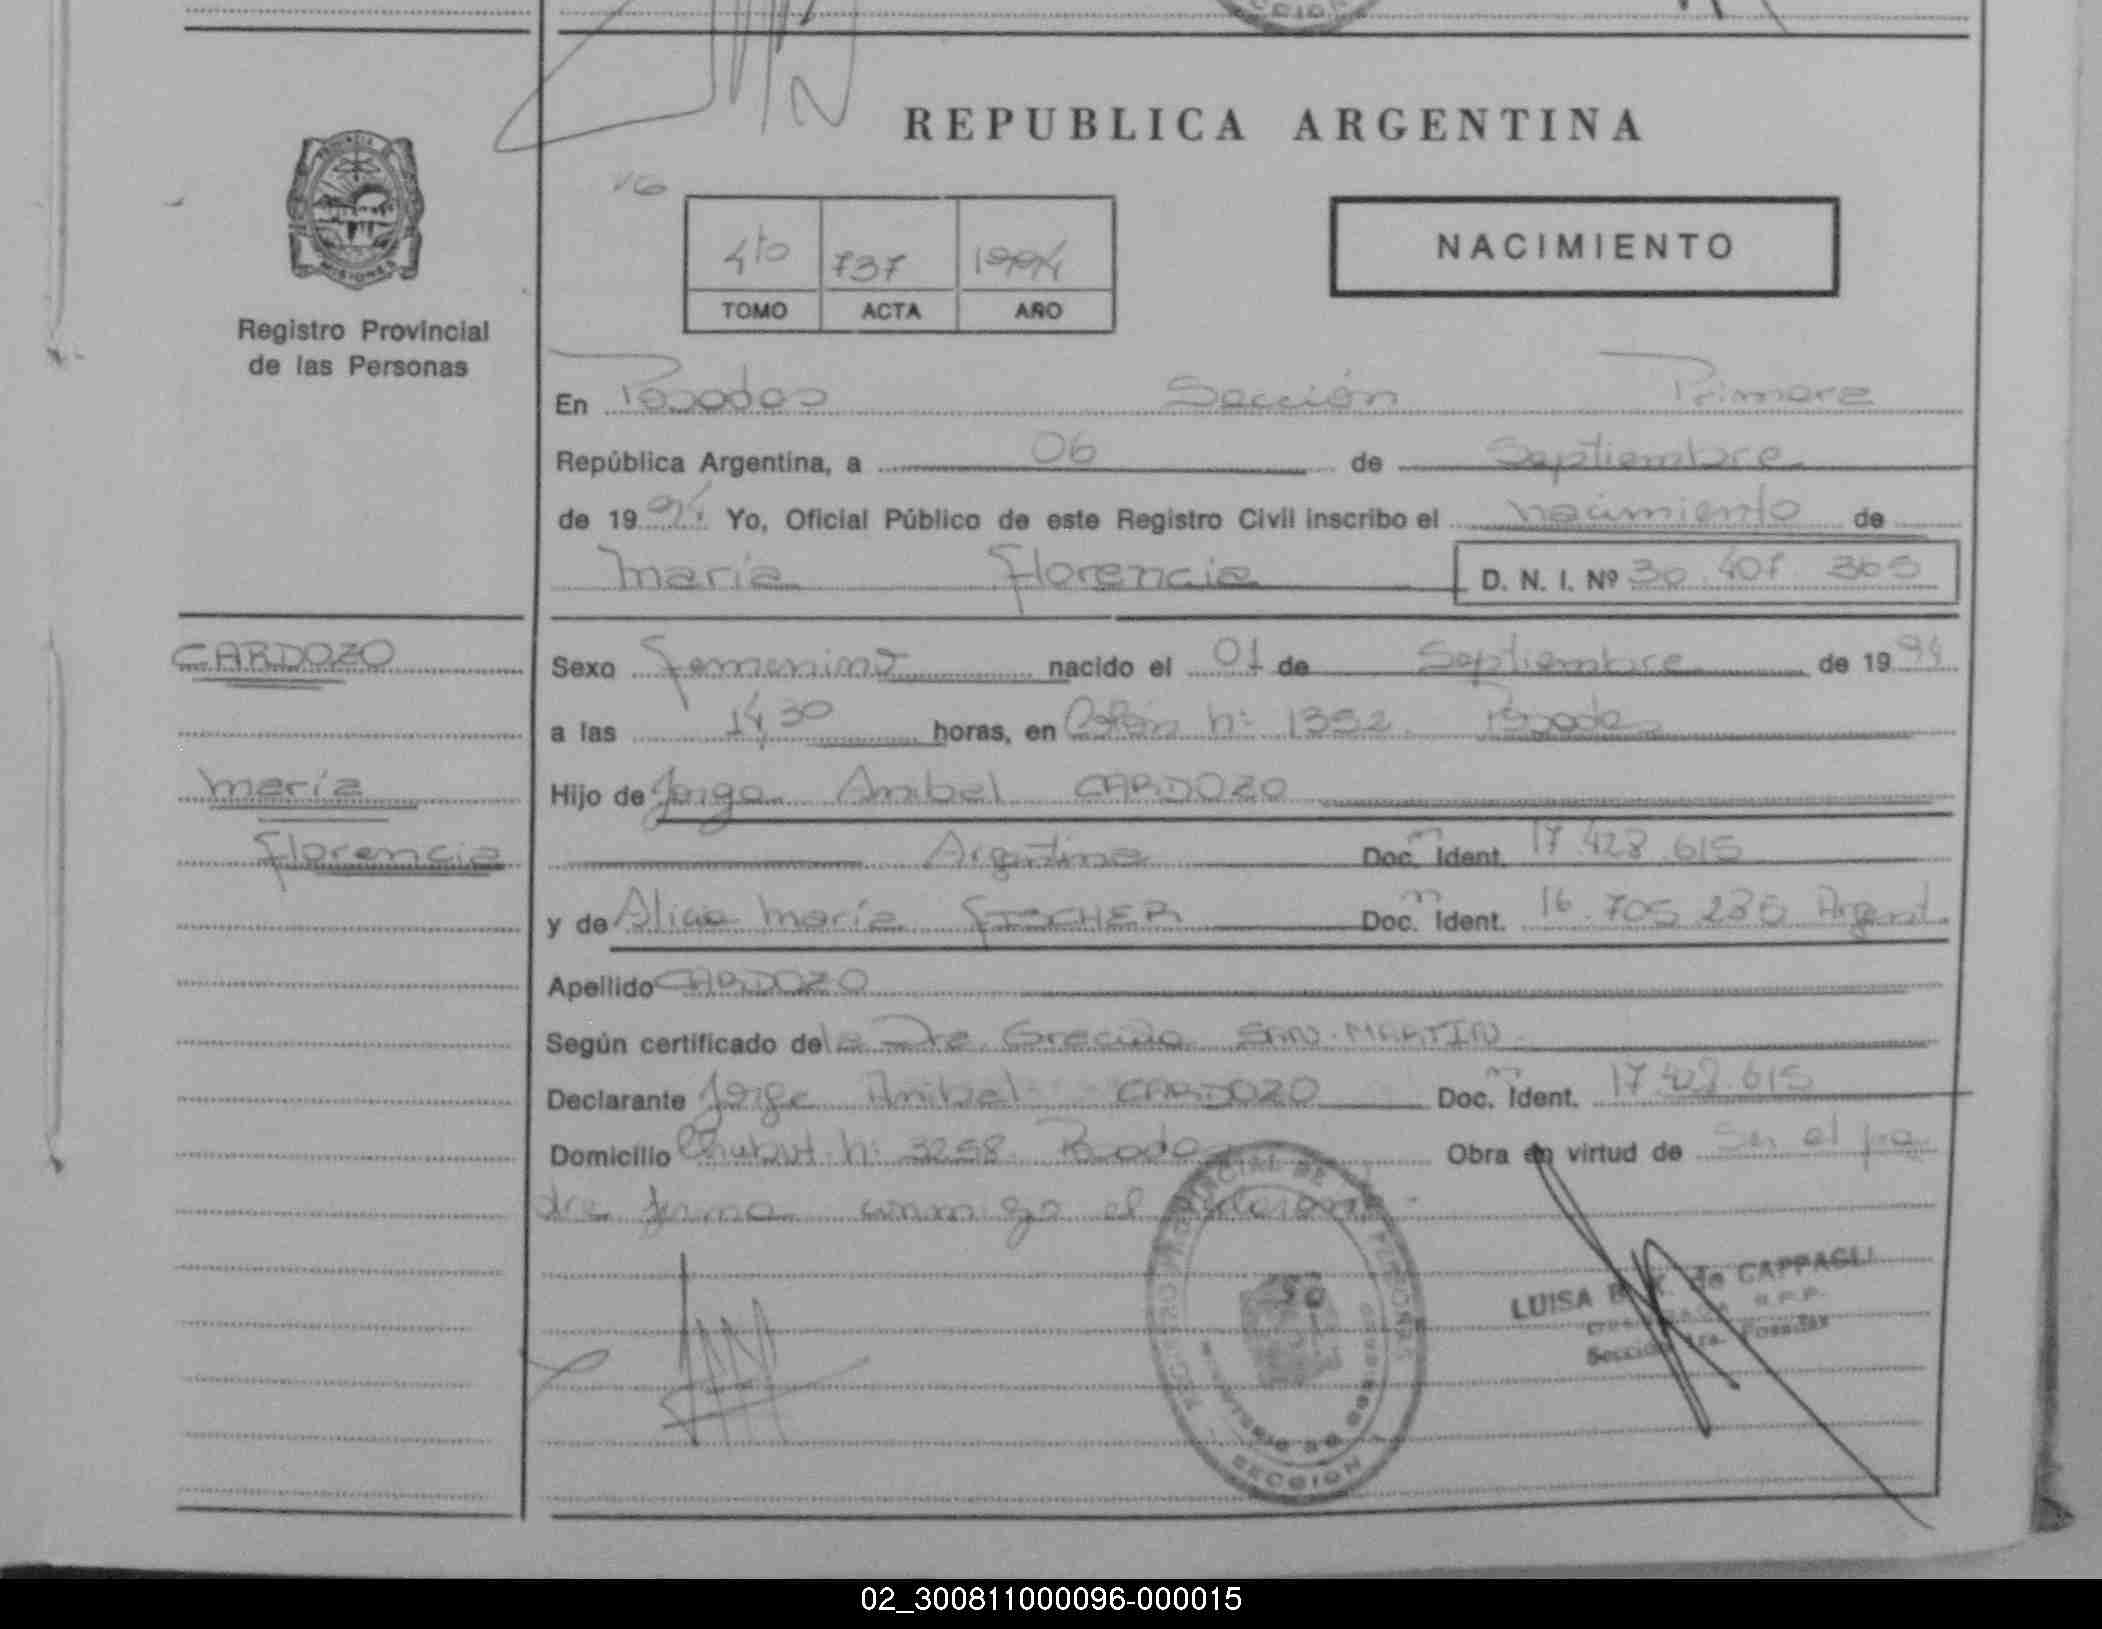 REPUBLICA ARGENTINA
4to 737 1994
TOMO ACTA AÑO
NACIMIENTO
MISIONES
Registro Provincial
de las Personas
En Posadas Sección Primera
República Argentina, a 06 de Septiembre
de 1994 Yo, Oficial Público de este Registro Civil inscribo el nacimiento de
María Florencia D. N. I. Nº 30.407.365
CARDOZO
Sexo femenino nacido el 01 de Septiembre de 1994
a las 14,30 horas, en Colón nº 1352 Posadas
María
Hijo de Jorge Anibal CARDOZO
Florencia
Argentina Doc. Ident. 17.428.615
y de Alicia María FISCHER Doc. Ident. 16.705.235 Argent.
Apellido CARDOZO
Según certificado de la Dra. Graciela SAN MARTIN
Declarante Jorge Anibal CARDOZO Doc. Ident. 17.428.615
Domicilio Chubut nº 3258 Posadas Obra en virtud de Ser el pa
dre firma conmigo el
LUISA B. de CAPPAGLI
R.P.P.
Sección 1ra. Posadas
SECCION
02_300811000096-000015